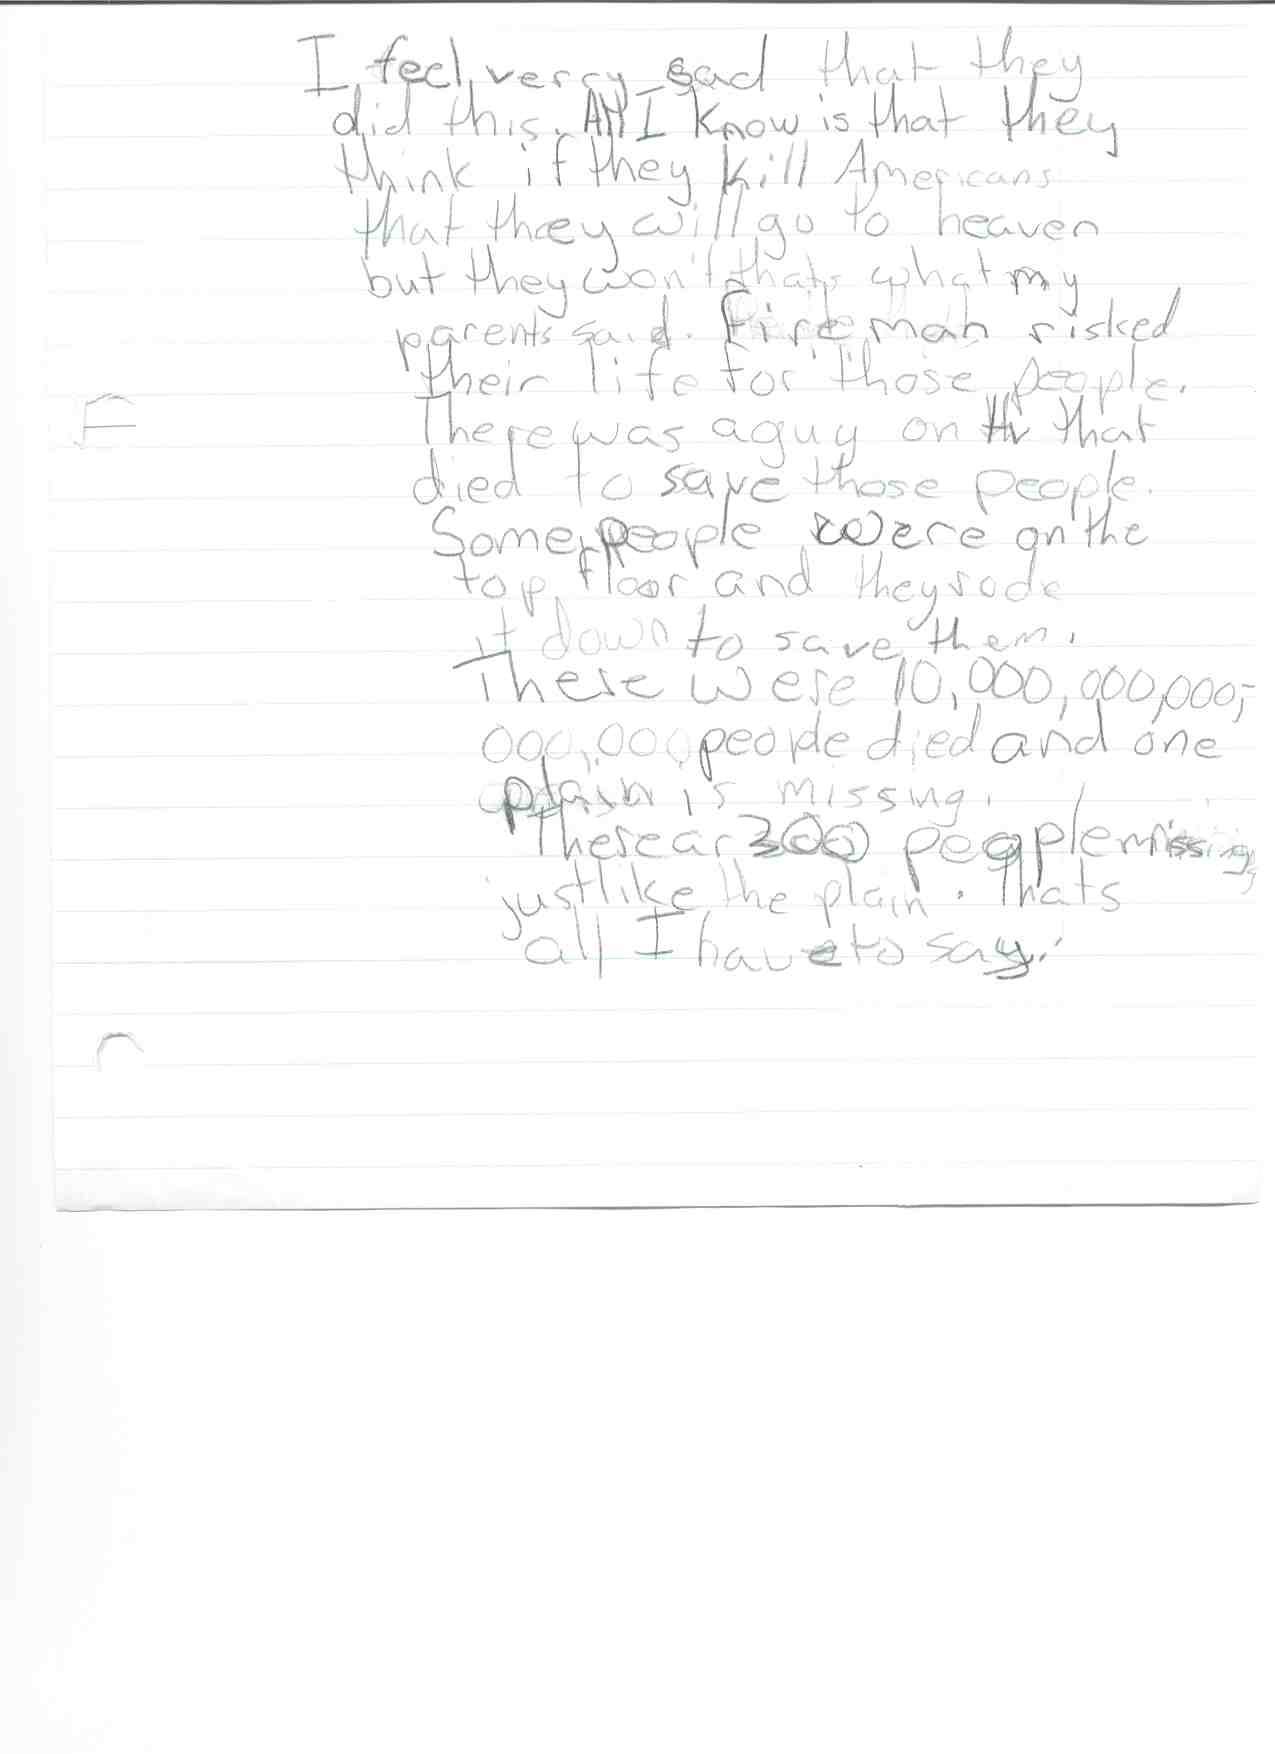 I feel verry sad that they
did this. All I know is that they
think if they kill Americans
that they will go to heaven
but they won't thats what my
parents said. Fireman risked
their life for those people.
There was a guy on tv that
died to save those people.
Some people were on the
top floor and they rode
it down to save them.
There were 10,000,000,000,-
000,000 people died and one
plain is missing.
There ar 300 people missing
just like the plain. Thats
all I have to say.